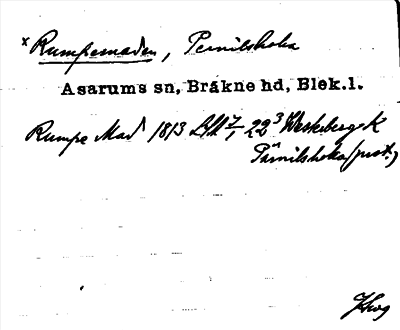 x Rumpemaden, Pernilshoka
Asarums sn, Bräkne hd, Blek.l.
Rumpe Mad 1813 LSA 7/1 22³ Westeberg K
Pärnilshoka (just.)